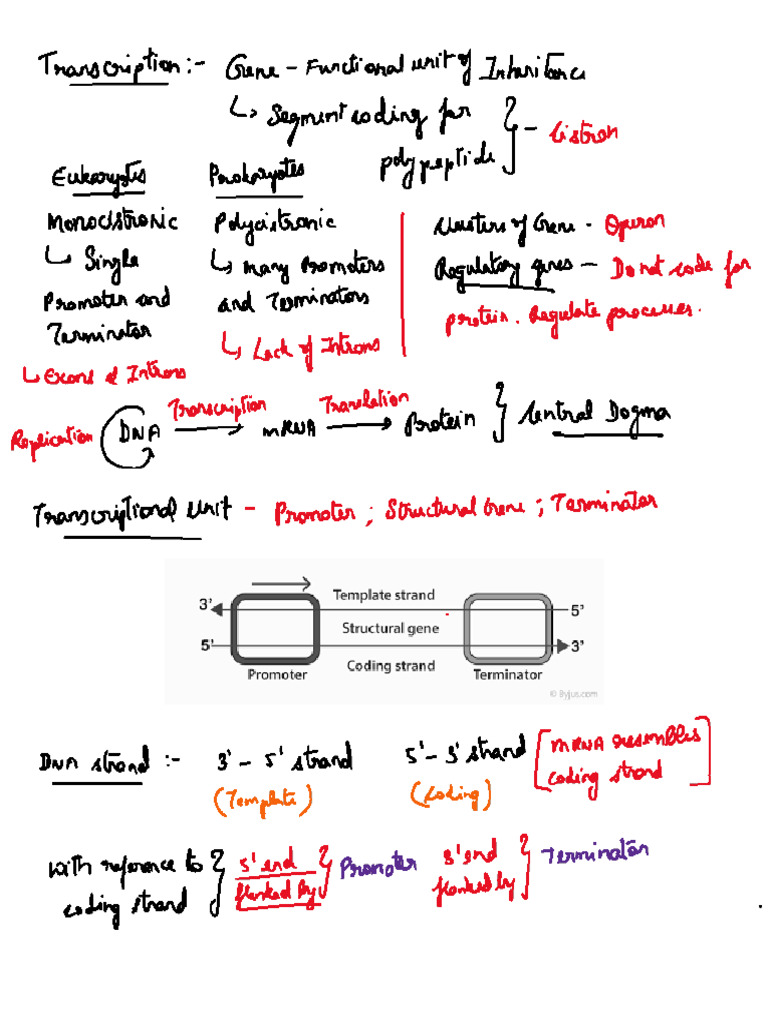 Transcription :- Gene - Functional unit of Inheritance
↳ Segment coding for polypeptide } - Cistron
Eukaryotes
Monocistronic
↳ Single
Promoter and
Terminator
↳ Exons & Introns
Prokaryotes
Polycistronic
↳ many Promoters
and Terminators
↳ Lack of Introns
Clusters of Gene - Operon
Regulatory genes - Do not code for
protein. Regulate processes.
Replication DNA Transcription → mRNA Translation → Protein } Central Dogma
Transcriptional Unit - Promoter ; Structural Gene ; Terminator
Template strand
3' 5'
Structural gene
5' 3'
Coding strand
Promoter Terminator
© Byjus.com
DNA strand :- 3' - 5' strand 5' - 3' strand [mRNA resembles
coding strand]
(Template) (Coding)
With reference to
coding strand } 5' end
flanked by } Promoter
3' end
flanked by } Terminator